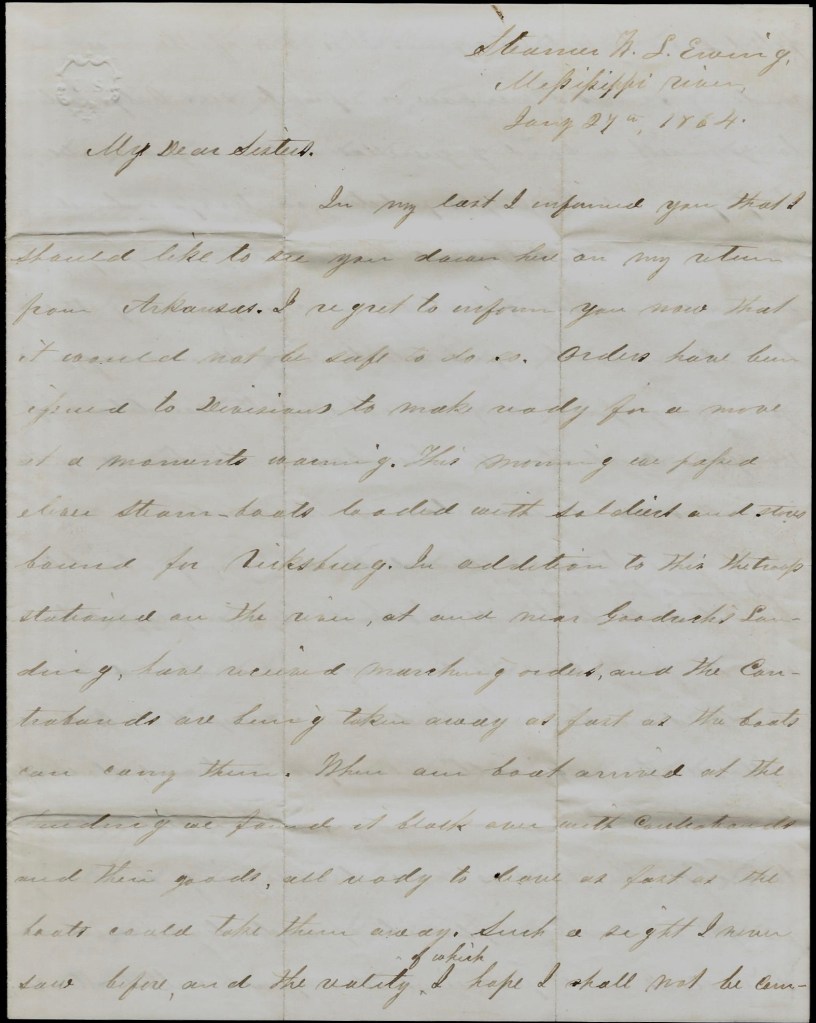 Steamer W. L. Ewing,
Mississippi river,
Jany 27th, 1864.
My Dear Sisters.
In my last I informed you that I
should like to see you down here on my return
from Arkansas. I regret to inform you now that
it would not be safe to do so. Orders have been
issued to Divisions to make ready for a move
at a moments warning. This morning we passed
eleven steam-boats loaded with soldiers and stores
bound for Vicksburg. In addition to this the troops
stationed on the river, at and near Goodrich's Lan-
ding, have received marching orders, and the Con-
trabands are being taken away as fast as the boats
can carry them. When our boat arrived at the
Landing we found it black over with Contrabands
and their goods, all ready to leave as fast as the
boats could take them away. Such a sight I never
saw before, and the reality of which I hope I shall not be com-